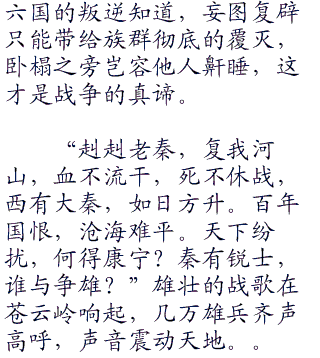 六国的叛逆知道，妄图复辟
只能带给族群彻底的覆灭，
卧榻之旁岂容他人鼾睡，这
才是战争的真谛。
“赳赳老秦，复我河
山，血不流干，死不休战，
西有大秦，如日方升。百年
国恨，沧海难平。天下纷
扰，何得康宁？秦有锐士，
谁与争雄？”雄壮的战歌在
苍云岭响起，几万雄兵齐声
高呼，声音震动天地。。